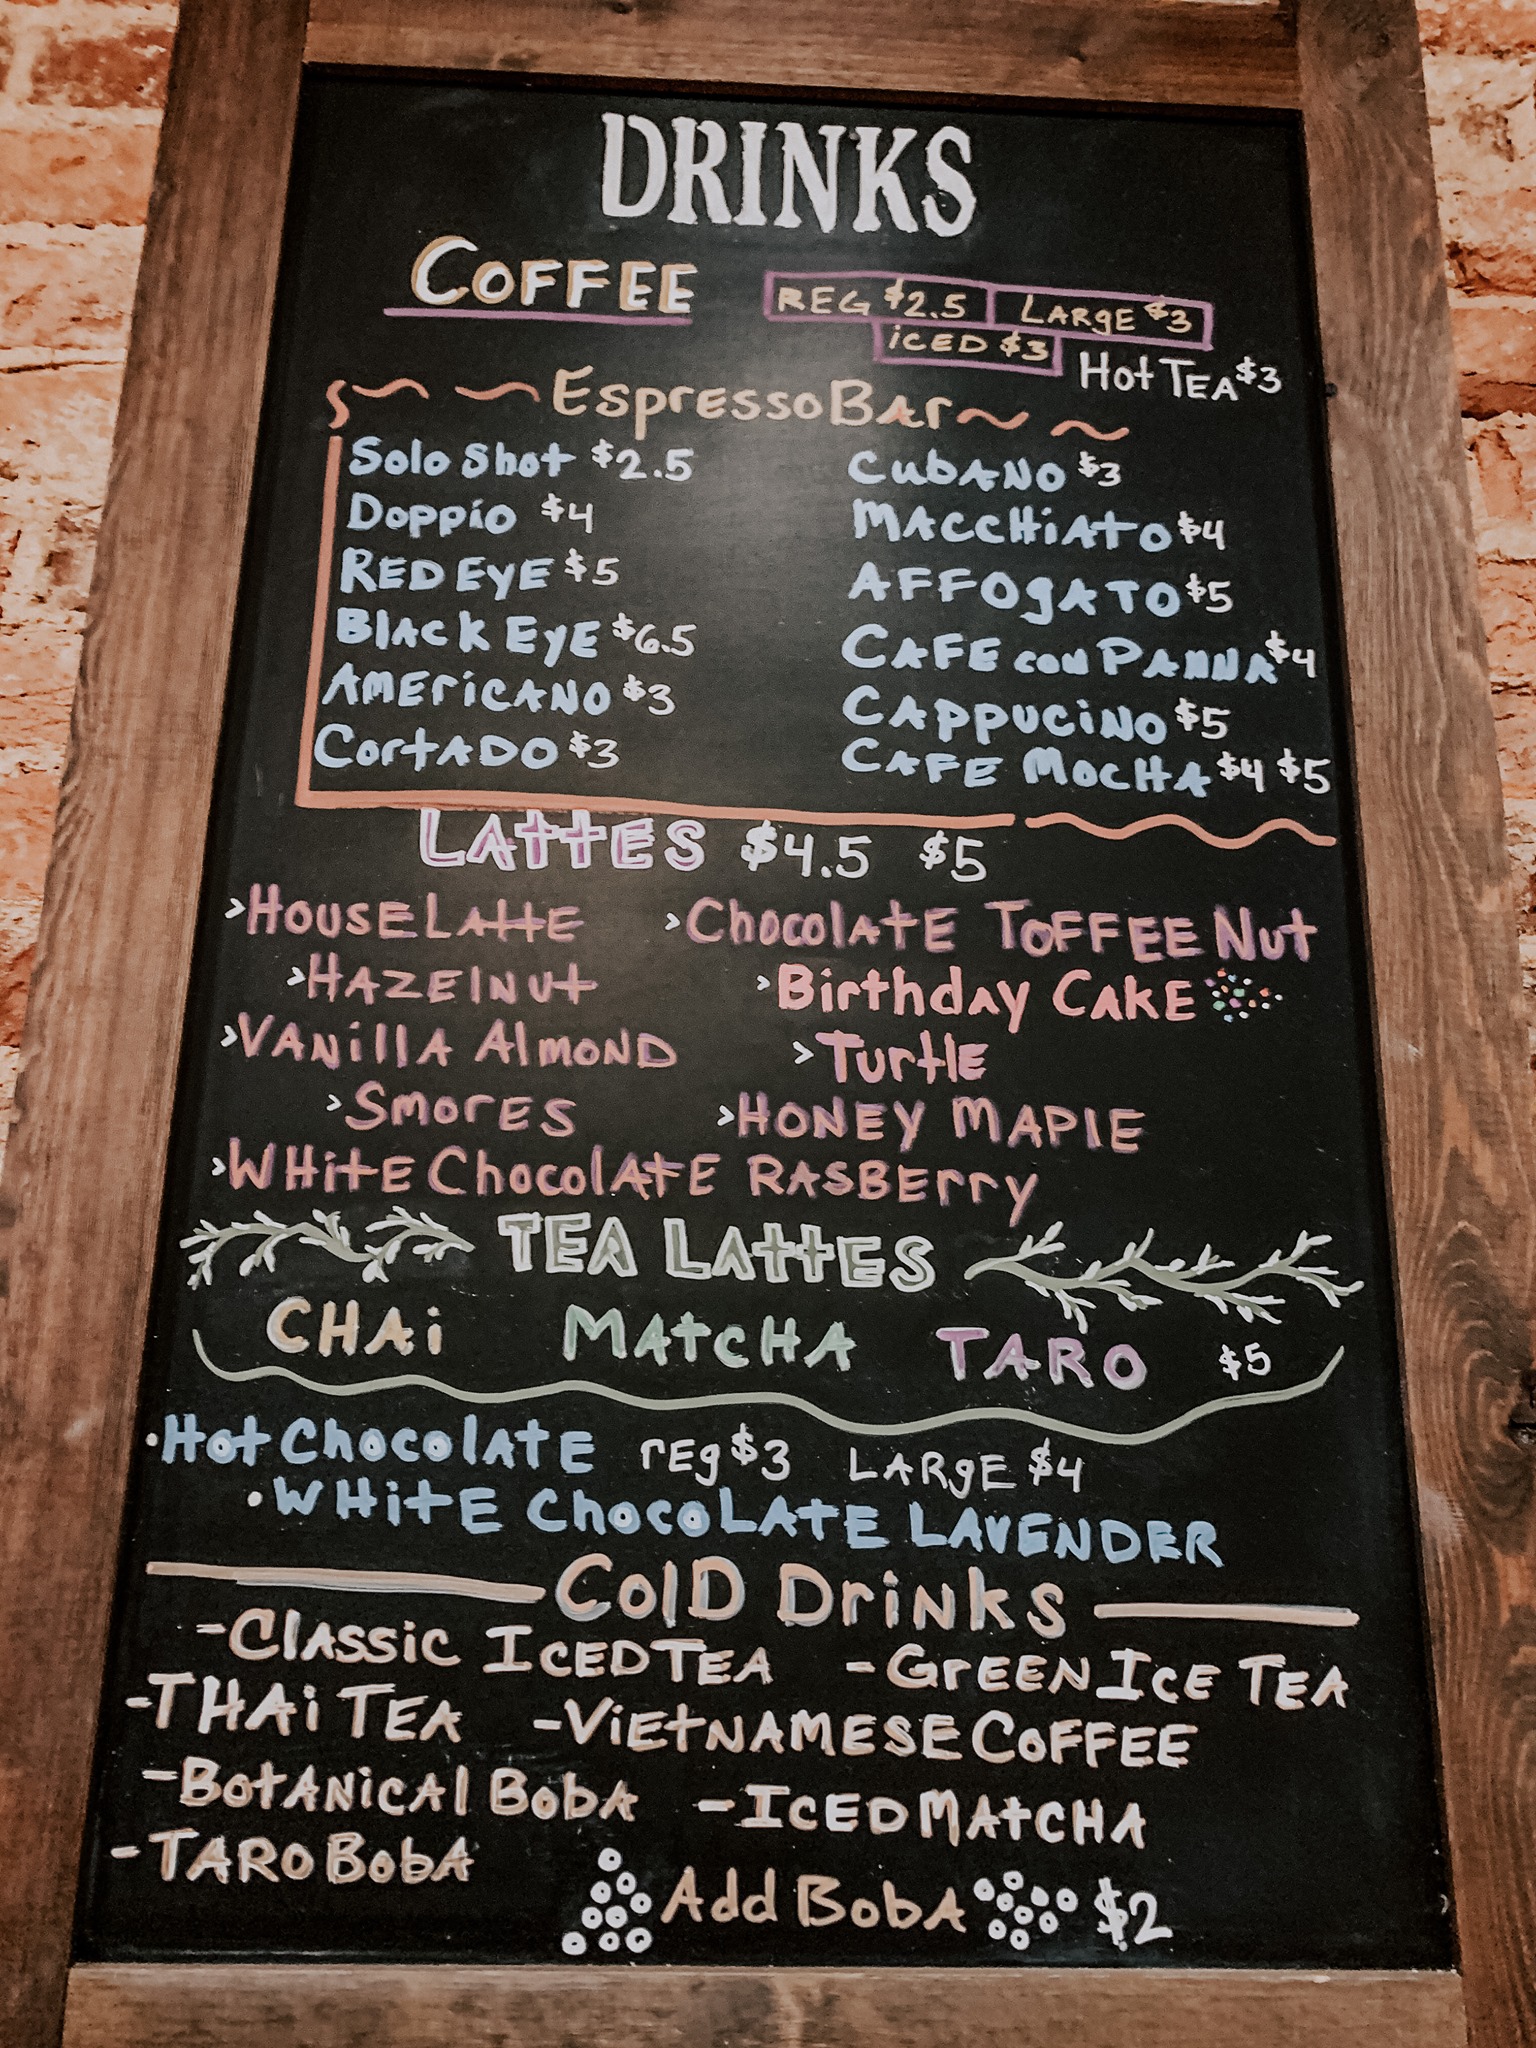 DRINKS
COFFEE REG $2.5 LARGE $3
ICED $3
Hot TEA $3
Espresso Bar
Solo Shot $2.5 CUBANO $3
Doppio $4 MACCHiATO $4
RED EYE $5 AFFOGATO $5
BLACK EYE $6.5 CAFE con PANNA $4
AMERICANO $3 CAPPUCiNO $5
CORTADO $3 CAFE MOCHA $4 $5
LATTES $4.5 $5
>HOUSE LATTE >Chocolate TOFFEE Nut
>HAZELNUT >Birthday CAKE
>VANillA AlMOND >Turtle
>SMORES >HONEY MAPlE
>WHITE Chocolate RASBERRY
TEA LATTES
CHAi MATCHA TARO $5
·Hot Chocolate REG $3 LARGE $4
·WHITE ChocoLATE LAVENDER
Cold Drinks
-Classic ICED TEA -GREEN ICE TEA
-THAi TEA -ViETNAMESE COFFEE
-BotANiCAl BobA -ICED MATCHA
-TARO BobA
Add BobA $2